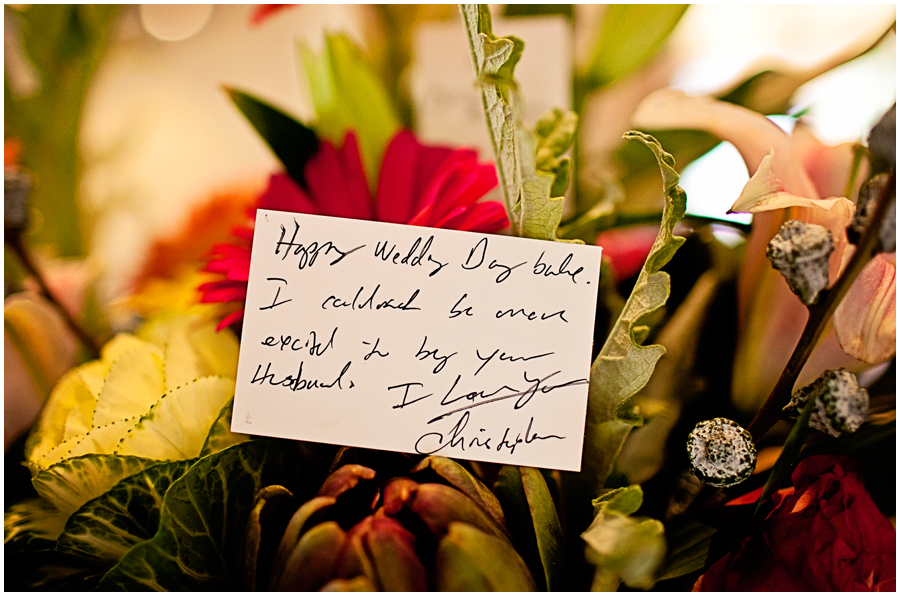 Happy Wedding Day babe.
I couldn't be more
excited to be your
Husband. I Love You
Christopher